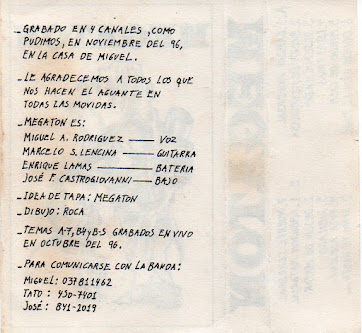 _GRABADO EN 4 CANALES, COMO
PUDIMOS, EN NOVIEMBRE DEL 96,
EN LA CASA DE MIGUEL.
_LE AGRADECEMOS A TODOS LOS QUE
NOS HACEN EL AGUANTE EN
TODAS LAS MOVIDAS.
_MEGATON ES:
MIGUEL A. RODRIGUEZ —— VOZ
MARCELO S. LENCINA —— GUITARRA
ENRIQUE LAMAS —— BATERIA
JOSÉ F. CASTROGIOVANNI — BAJO
_IDEA DE TAPA: MEGATON
_DIBUJO: ROCA
_TEMAS A-7, B4 y B-5 GRABADOS EN VIVO
EN OCTUBRE DEL 96.
_PARA COMUNICARSE CON LA BANDA:
MIGUEL: 037811462
TATO: 450-7401
JOSÉ: 841-2019